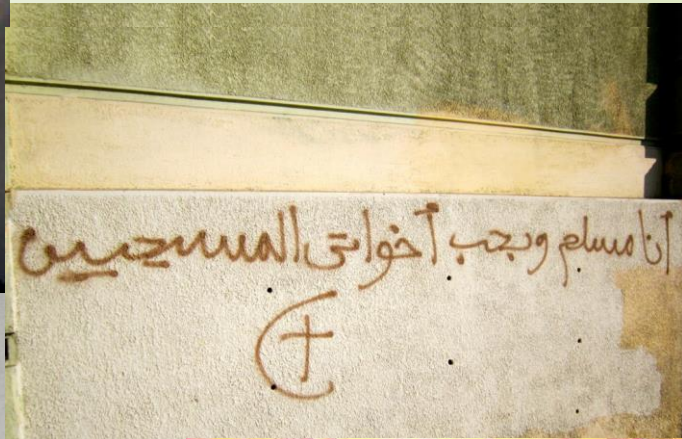 أنا مسلم وبحب أخواتى المسيحيين